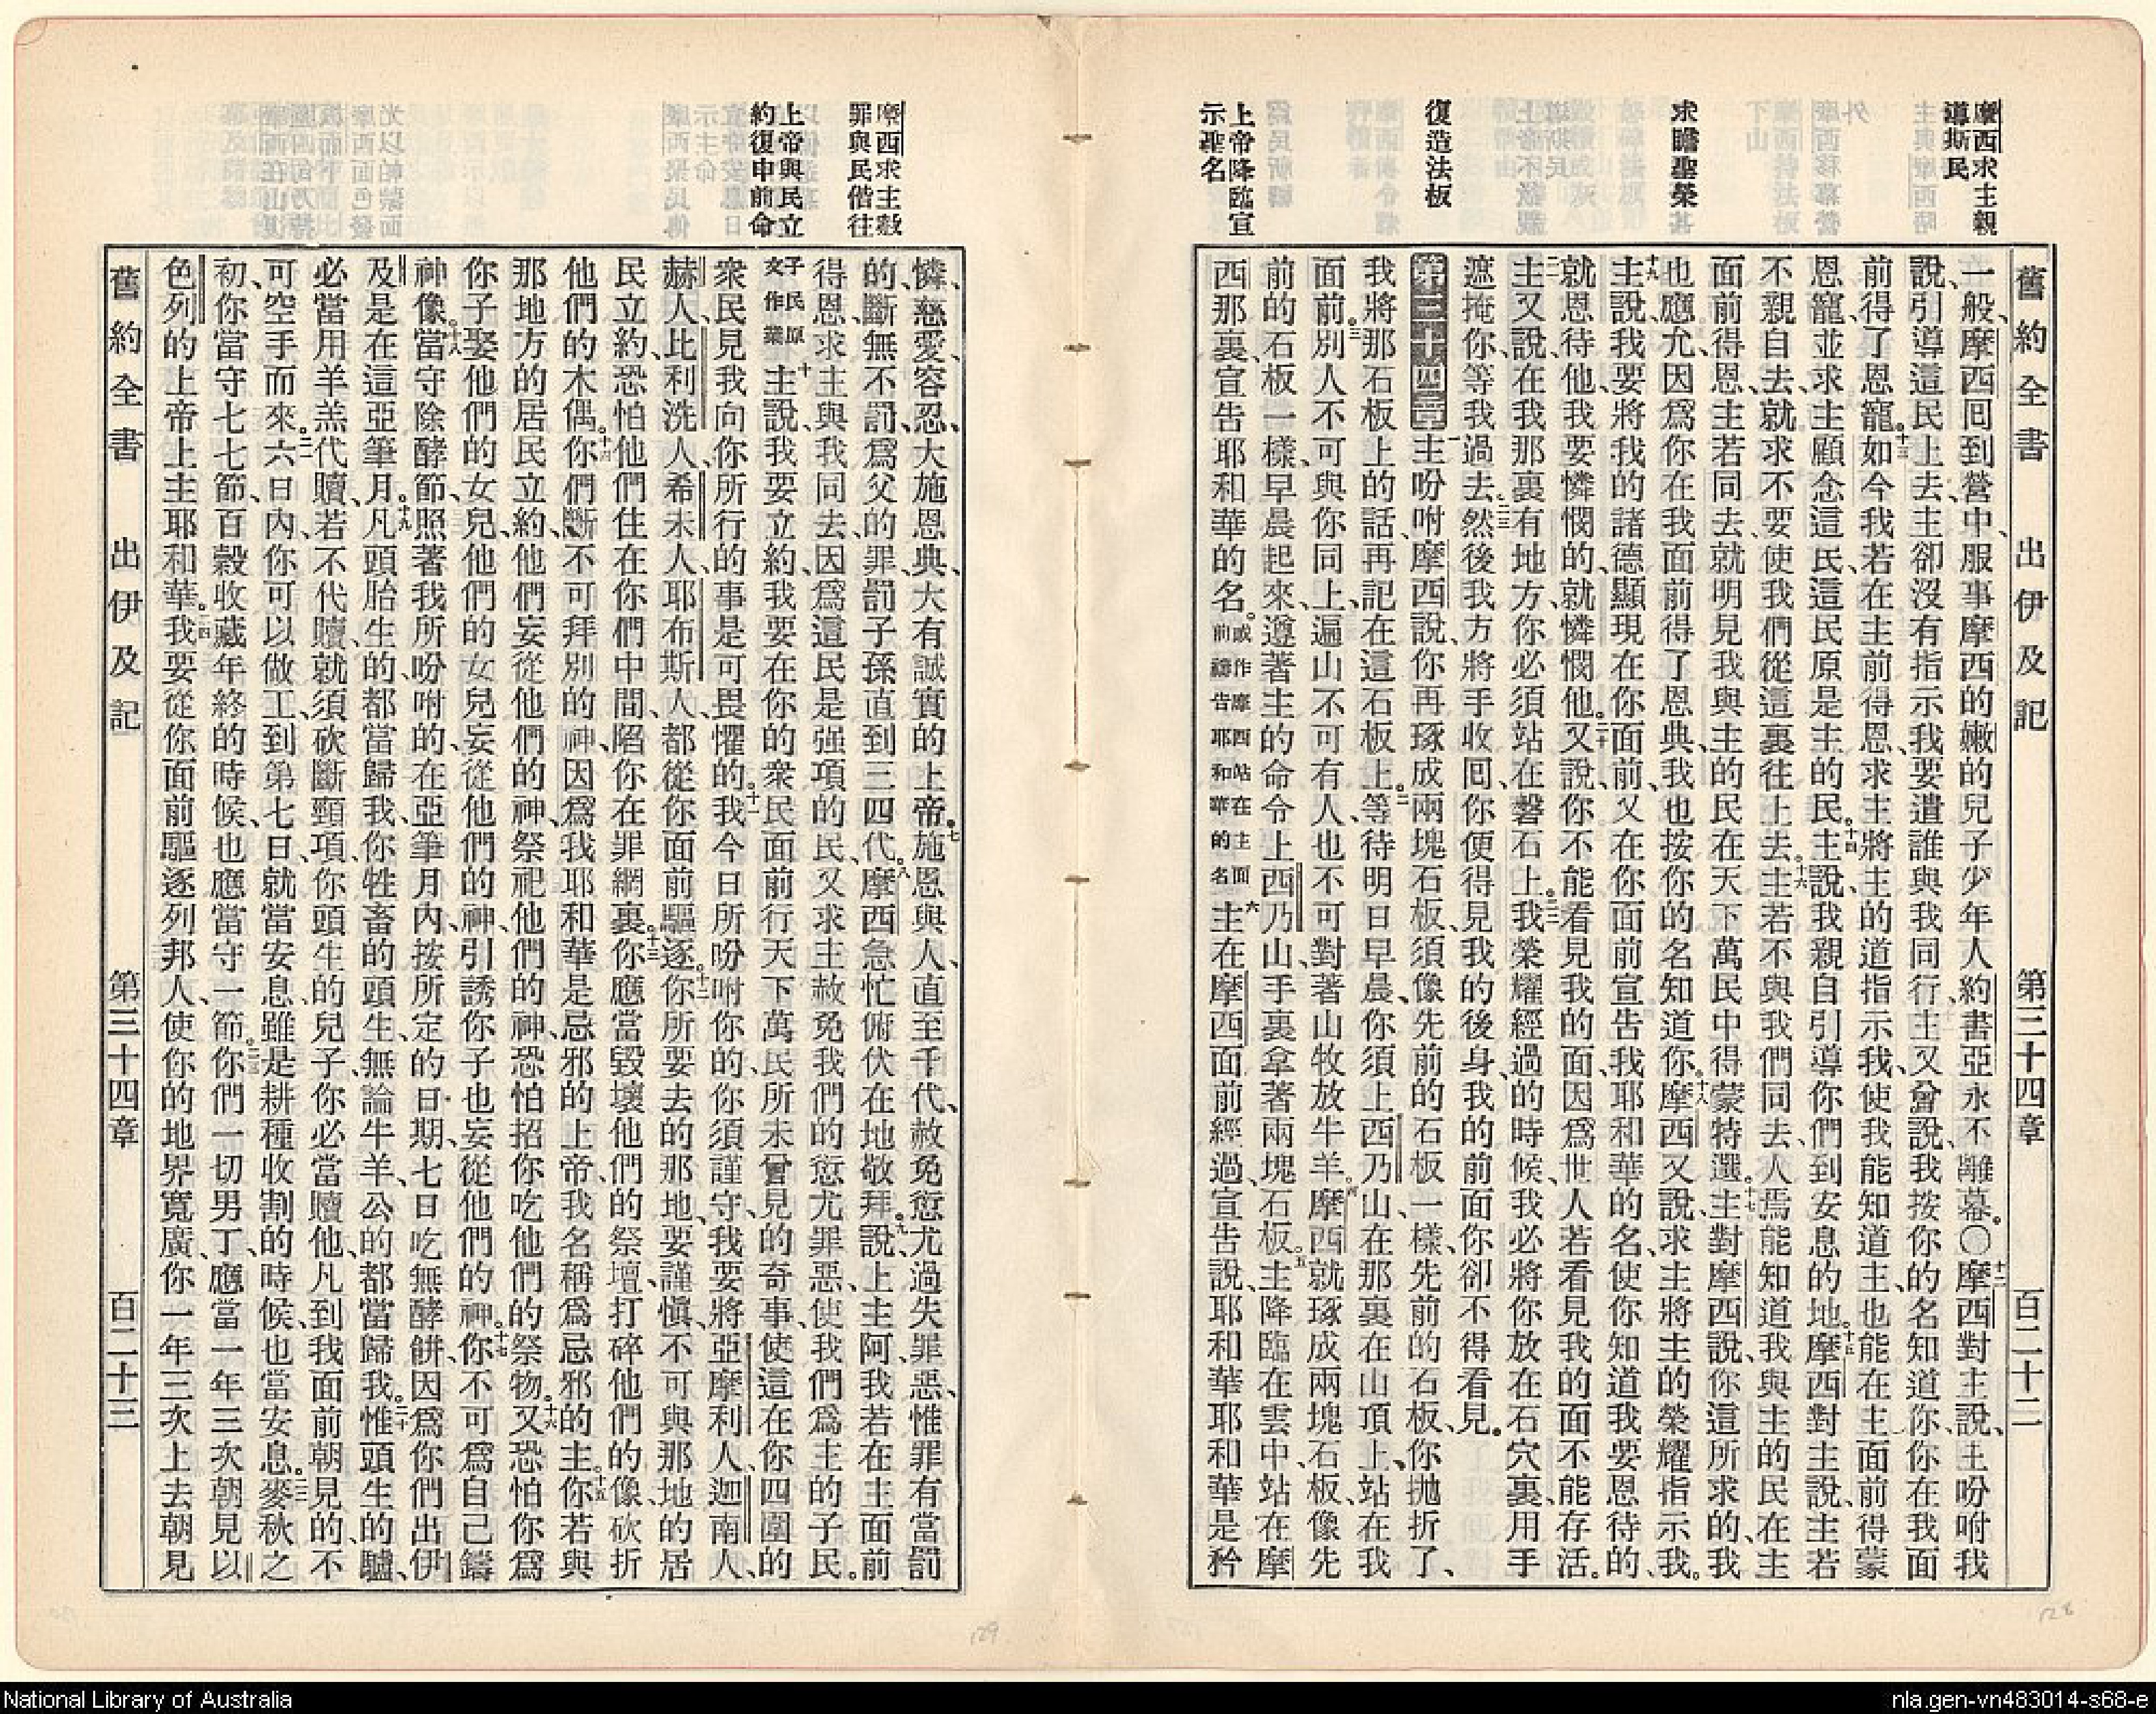 摩西求主親
導斯民
求瞻聖榮
復造法板
上帝降臨宣
示聖名
舊約全書 出伊及記 第三十四章 百二十二
一般、摩西囘到營中、服事摩西的嫩的兒子少年人約書亞永不離幕。〇十二摩西對主說、主吩咐我
說、引導這民上去、主卻沒有指示我、要遣誰與我同行、主又曾說、我按你的名知道你、你在我面
前得了恩寵。十三如今我若在主前得恩、求主將主的道指示我、使我能知道主、也能在主面前得蒙
恩寵、並求主顧念這民、這民原是主的民。十四主說、我親自引導你們到安息的地。十五摩西對主說、主若
不親自去、就求不要使我們從這裏往上去。十六主若不與我們同去、人焉能知道我與主的民在主
面前得恩、主若同去、就明見我與主的民在天下萬民中得蒙特選。十七主對摩西說、你這所求的、我
也應允、因爲你在我面前得了恩典、我也按你的名知道你。十八摩西又說、求主將主的榮耀指示我。
十九主說、我要將我的諸德顯現在你面前、又在你面前宣告我耶和華的名、使你知道我要恩待的、
就恩待他、我要憐憫的、就憐憫他。二十又說、你不能看見我的面、因爲世人若看見我的面不能存活。
二一主又說、在我那裏有地方、你必須站在磐石上。二二我榮耀經過的時候、我必將你放在石穴裏、用手
遮掩你、等我過去。二三然後我方將手收囘、你便得見我的後身、我的前面你卻不得看見。
第三十四章一主吩咐摩西說、你再琢成兩塊石板、須像先前的石板一樣、先前的石板、你拋折了、
我將那石板上的話、再記在這石板上。二等待明日早晨、你須上西乃山、在那裏在山頂上、站在我
面前。三別人不可與你同上、遍山不可有人、也不可對著山牧放牛羊。四摩西就琢成兩塊石板、像先
前的石板一樣、早晨起來、遵著主的命令上西乃山、手裏拿著兩塊石板。五主降臨在雲中、站在摩
西那裏、宣告耶和華的名。或作摩西站在主面前禱告耶和華的名六主在摩西面前經過、宣告說、耶和華耶和華是矜
摩西求主赦
罪與民偕往
上帝與民立
約復申前命
憐、慈愛、容忍、大施恩典、大有誠實的上帝。七施恩與人、直至千代、赦免愆尤過失罪惡、惟罪有當罰
的、斷無不罰、爲父的罪、罰子孫直到三四代。八摩西急忙俯伏在地敬拜。九說、上主阿、我若在主面前
得恩、求主與我同去、因爲這民是强項的民、又求主赦免我們的愆尤罪惡、使我們爲主的子民。
子民原文作業十主說、我要立約、我要在你的衆民面前行天下萬民所未曾見的奇事、使這在你四圍的
衆民見我向你所行的事是可畏懼的。十一我今日所吩咐你的、你須謹守、我要將亞摩利人、迦南人、
赫人、比利洗人、希未人、耶布斯人、都從你面前驅逐。十二你所要去的那地、要謹愼不可與那地的居
民立約、恐怕他們住在你們中間、陷你在罪網裏。十三你應當毀壞他們的祭壇、打碎他們的像、砍折
他們的木偶。十四你們斷不可拜別的神、因爲我耶和華是忌邪的上帝、我名稱爲忌邪的主。十五你若與
那地方的居民立約、他們妄從他們的神、祭祀他們的神、恐怕招你吃他們的祭物。十六又恐怕你爲
你子娶他們的女兒、他們的女兒妄從他們的神、引誘你子也妄從他們的神。十七你不可爲自己鑄
神像。十八當守除酵節、照著我所吩咐的、在亞筆月內、按所定的日期、七日吃無酵餅、因爲你們出伊
及是在這亞筆月。十九凡頭胎生的、都當歸我、你牲畜的頭生、無論牛羊、公的都當歸我。二十惟頭生的驢、
必當用羊羔代贖、若不代贖、就須砍斷頸項、你頭生的兒子、你必當贖他、凡到我面前朝見的、不
可空手而來。二一六日內、你可以做工、到第七日、就當安息、雖是耕種收割的時候、也當安息。二二麥秋之
初、你當守七七節、百穀收藏年終的時候、也應當守一節。二三你們一切男丁、應當一年三次朝見以
色列的上帝上主耶和華。二四我要從你面前驅逐列邦人、使你的地界寬廣、你一年三次上去朝見
舊約全書 出伊及記 第三十四章 百二十三
129
128
National Library of Australia
nla.gen-vn483014-s68-e